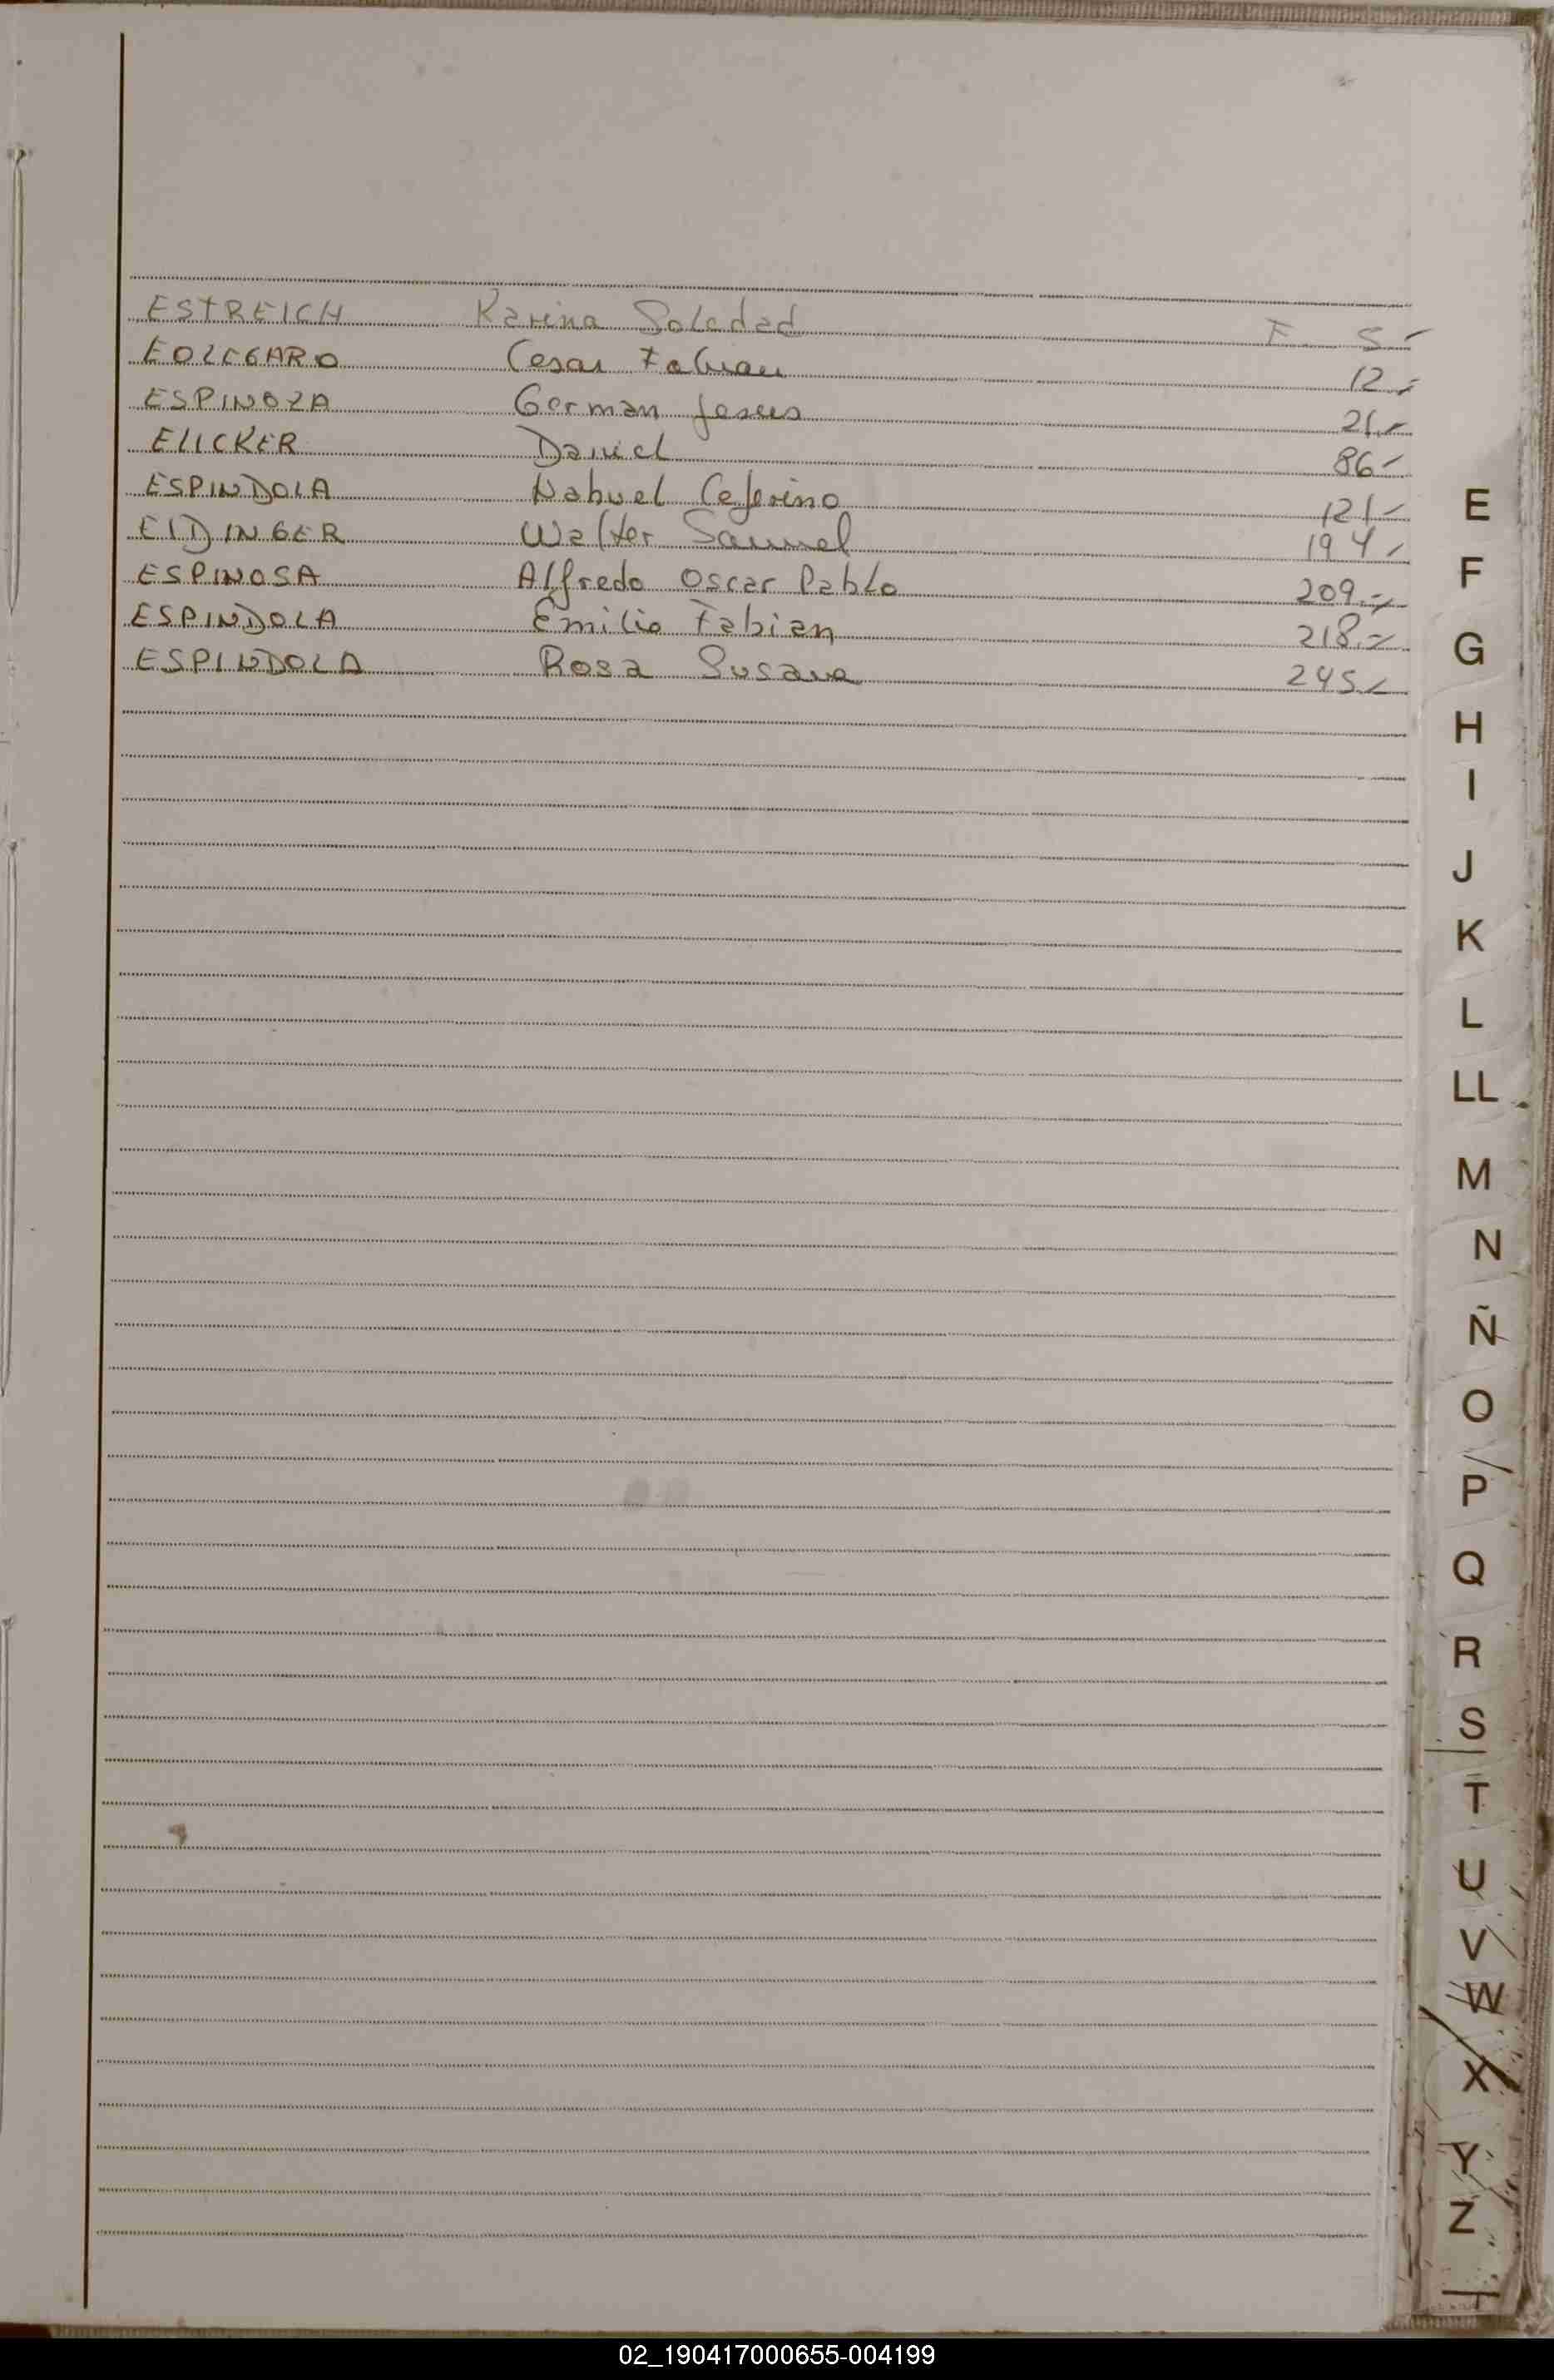 ESTREICH Karina Soledad F. 5.-
EOLEGARO Cesar Fabian 12.-
ESPINOZA German Jesus 21.-
ELICKER Daniel 86-
ESPINDOLA Nahuel Ceferino 121-
EIDINGER Walter Samuel 194-
ESPINOSA Alfredo Oscar Pablo 209.-
ESPINDOLA Emilio Fabian 218.-
ESPINDOLA Rosa Susana 245-
E
F
G
H
I
J
K
L
LL
M
N
Ñ
O
P
Q
R
S
T
U
V
W
X
Y
Z
02_190417000655-004199